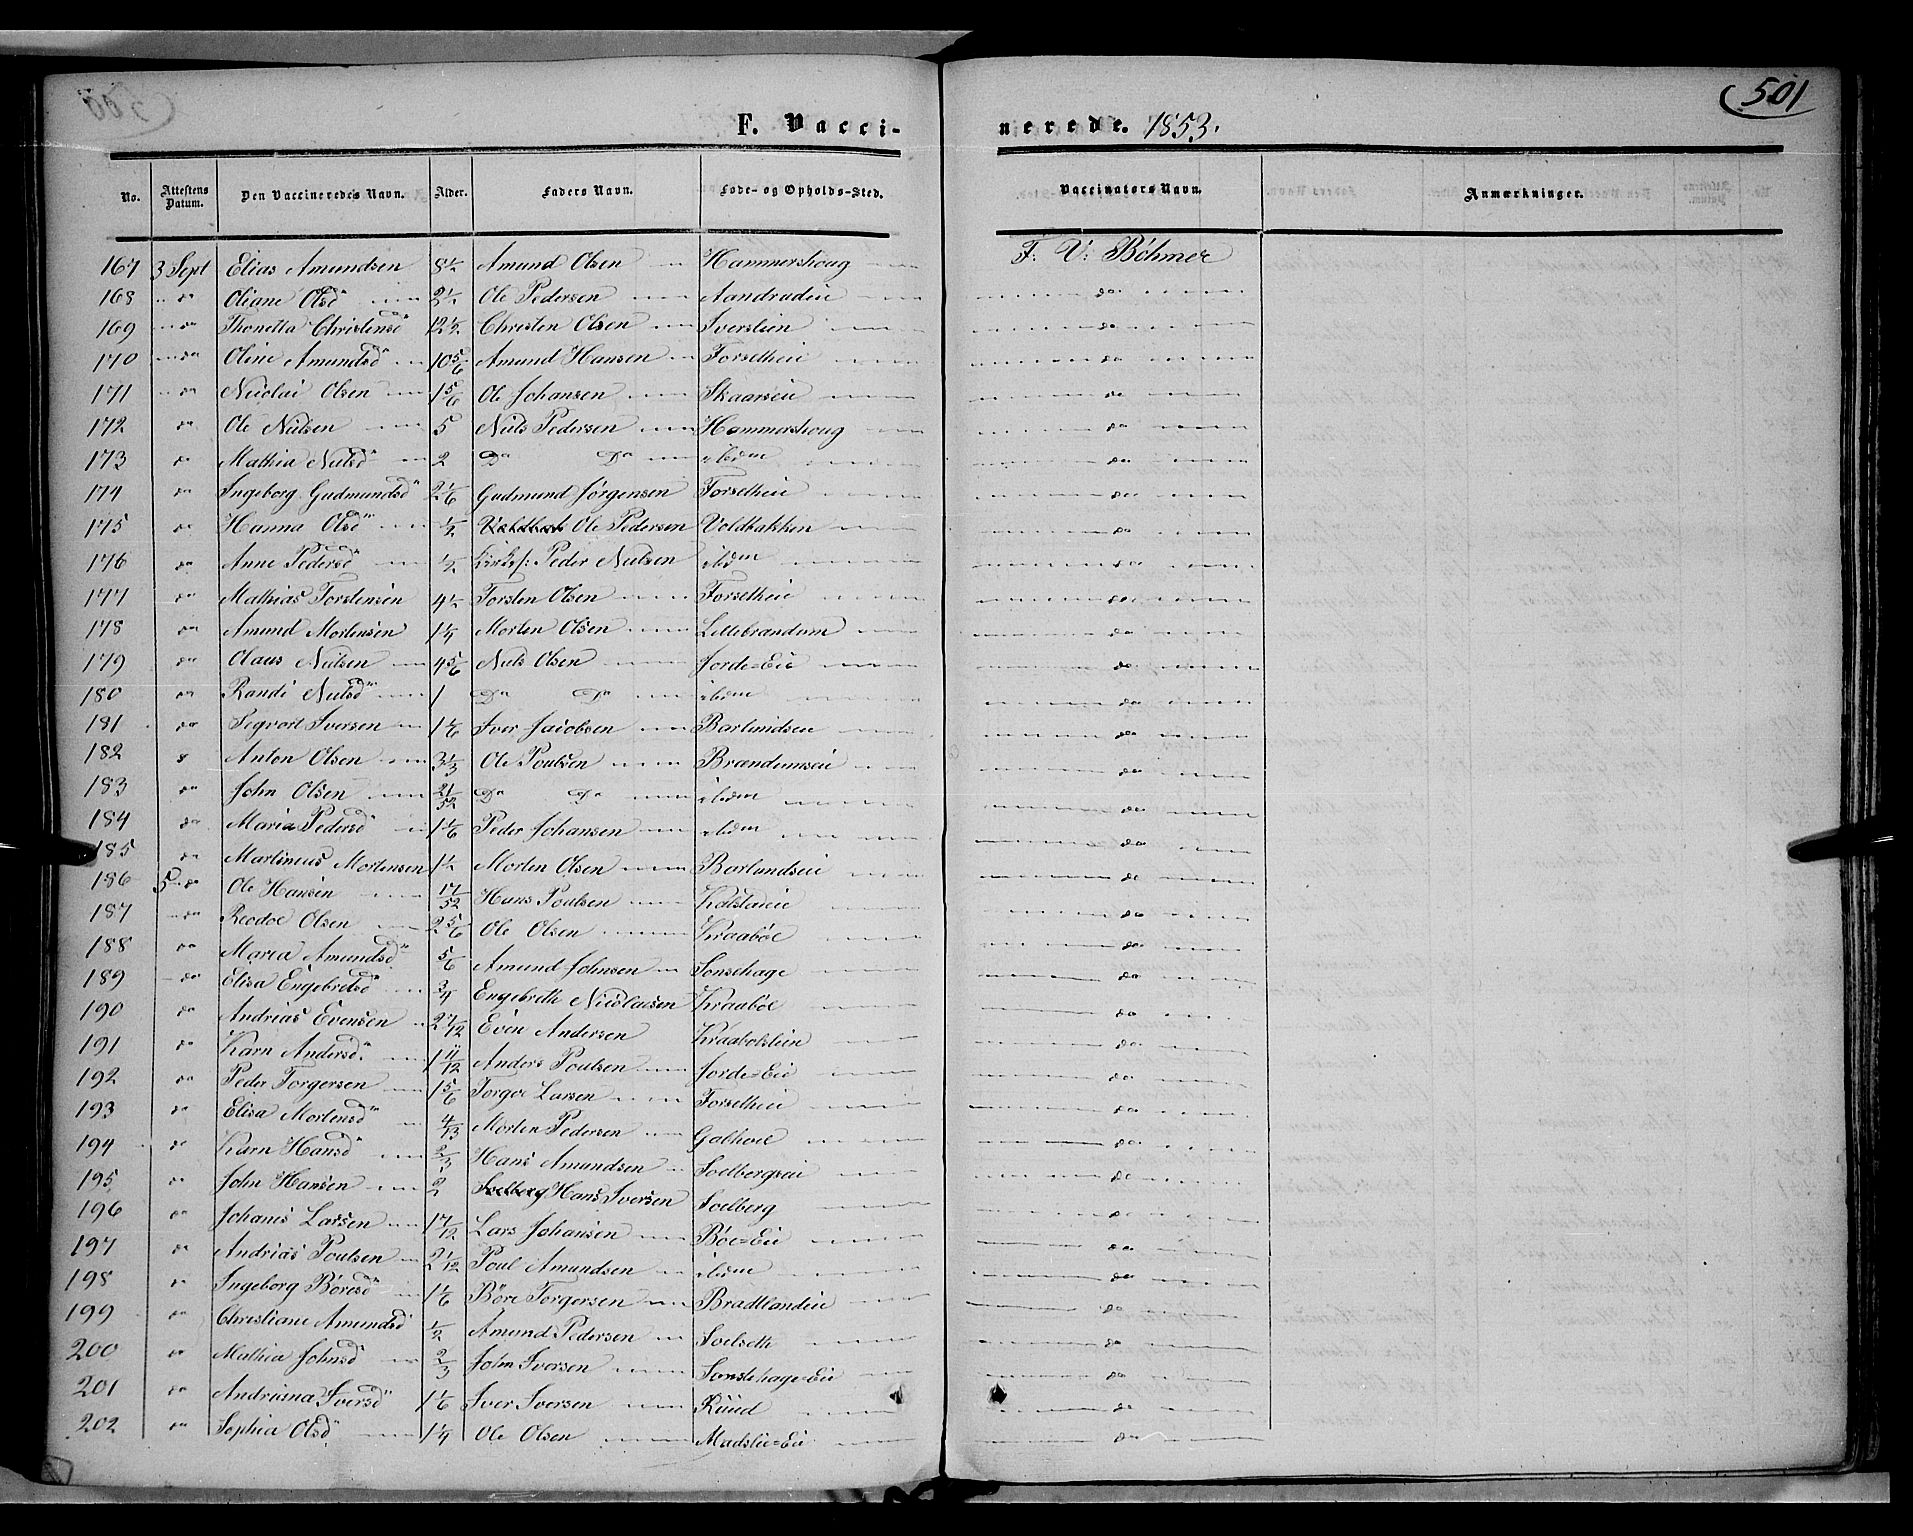 501
F. Vaccinerede. 1853.
No. Attestens Datum. Den Vaccineredes Navn. Alder. Faders Navn. Føde- og Opholds-Sted. Vaccinators Navn. Anmærkninger.
167 3 Sept Elias Amundsen 8½ Amund Olsen Hammershoug F. V: Böhmer
168 do Oliane Olsd 2½ Ole Pedersen Aandrudeie do
169 do Thonetta Christensd 12½ Christen Olsen Iverslien do
170 do Oline Amundsd 10 5/6 Amund Hansen Forsetheie do
171 do Nicolai Olsen 1 5/6 Ole Johansen Skaarseie do
172 do Ole Nilsen 5 Nils Pedersen Hammershoug do
173 do Mathia Nilsd 2 Do Do ibidm do
174 do Ingeborg Gudmundsd 2 1/6 Gudmund Jørgensen Forsetheie do
175 do Hanna Olsd ½ Ole Pedersen Voldbakken do
176 do Anne Pedersd ½ Peder Nilsen ibidm do
177 do Mathias Torstensen 4½ Torsten Olsen Forsetheie do
178 do Amund Mortensen 1¼ Morten Olsen Lillebrandum do
179 do Olaus Nilsen 4 5/6 Nils Olsen Jorde=Eie do
180 do Randi Nilsd 1 Do Do ibidm do
181 do Segvart Iversen 1 1/6 Iver Jacobsen Barlundseie do
182 Anton Olsen 3 1/3 Ole Poulsen Brandumseie do
183 do John Olsen 21/52 Do Do ibidm do
184 do Maria Pedersd 1 1/6 Peder Johansen ibidm do
185 do Martinus Mortensen 1½ Morten Olsen Barlundseie do
186 5 do Ole Hansen 17/52 Hans Poulsen Kolstadeie do
187 do Reodor Olsen 2 5/6 Ole Olsen Kraabøl do
188 do Marea Amundsd 5/6 Amund Johnsen Sonsehage do
189 do Elisa Engebretsd 3/4 Engebreth Nicolaisen Kraabøl do
190 do Andrias Evensen 2 7/12 Even Andersen Kraabølslien do
191 do Karn Andersd 1 11/12 Anders Poulsen Jorde=Eie do
192 do Peder Torgersen 1 5/6 Torger Larsen Forsetheie do
193 do Elisa Mortensd 4/13 Morten Pedersen do
194 do Karn Hansd 2/3 Hans Amundsen Soelbergseie do
195 do John Hansen 2 Soelberg Hans Iversen Soelberg do
196 do Johanes Larsen 1 7/12 Lars Johansen Bøe=Eie do
197 do Andrias Poulsen 2 1/12 Poul Amundsen ibidm do
198 do Ingeborg Böresd 1 1/6 Böre Torgersen Bradtlandeie do
199 do Christiane Amundsd ½ Amund Pedersen Soelseth do
200 do Mathea Johnsd 2/3 John Iversen Sonstehage=Eie do
201 do Andriana Iversd 1 1/6 Iver Iversen Ruud do
202 do Sophia Olsd 1¼ Ole Olsen Madslie=Eie do